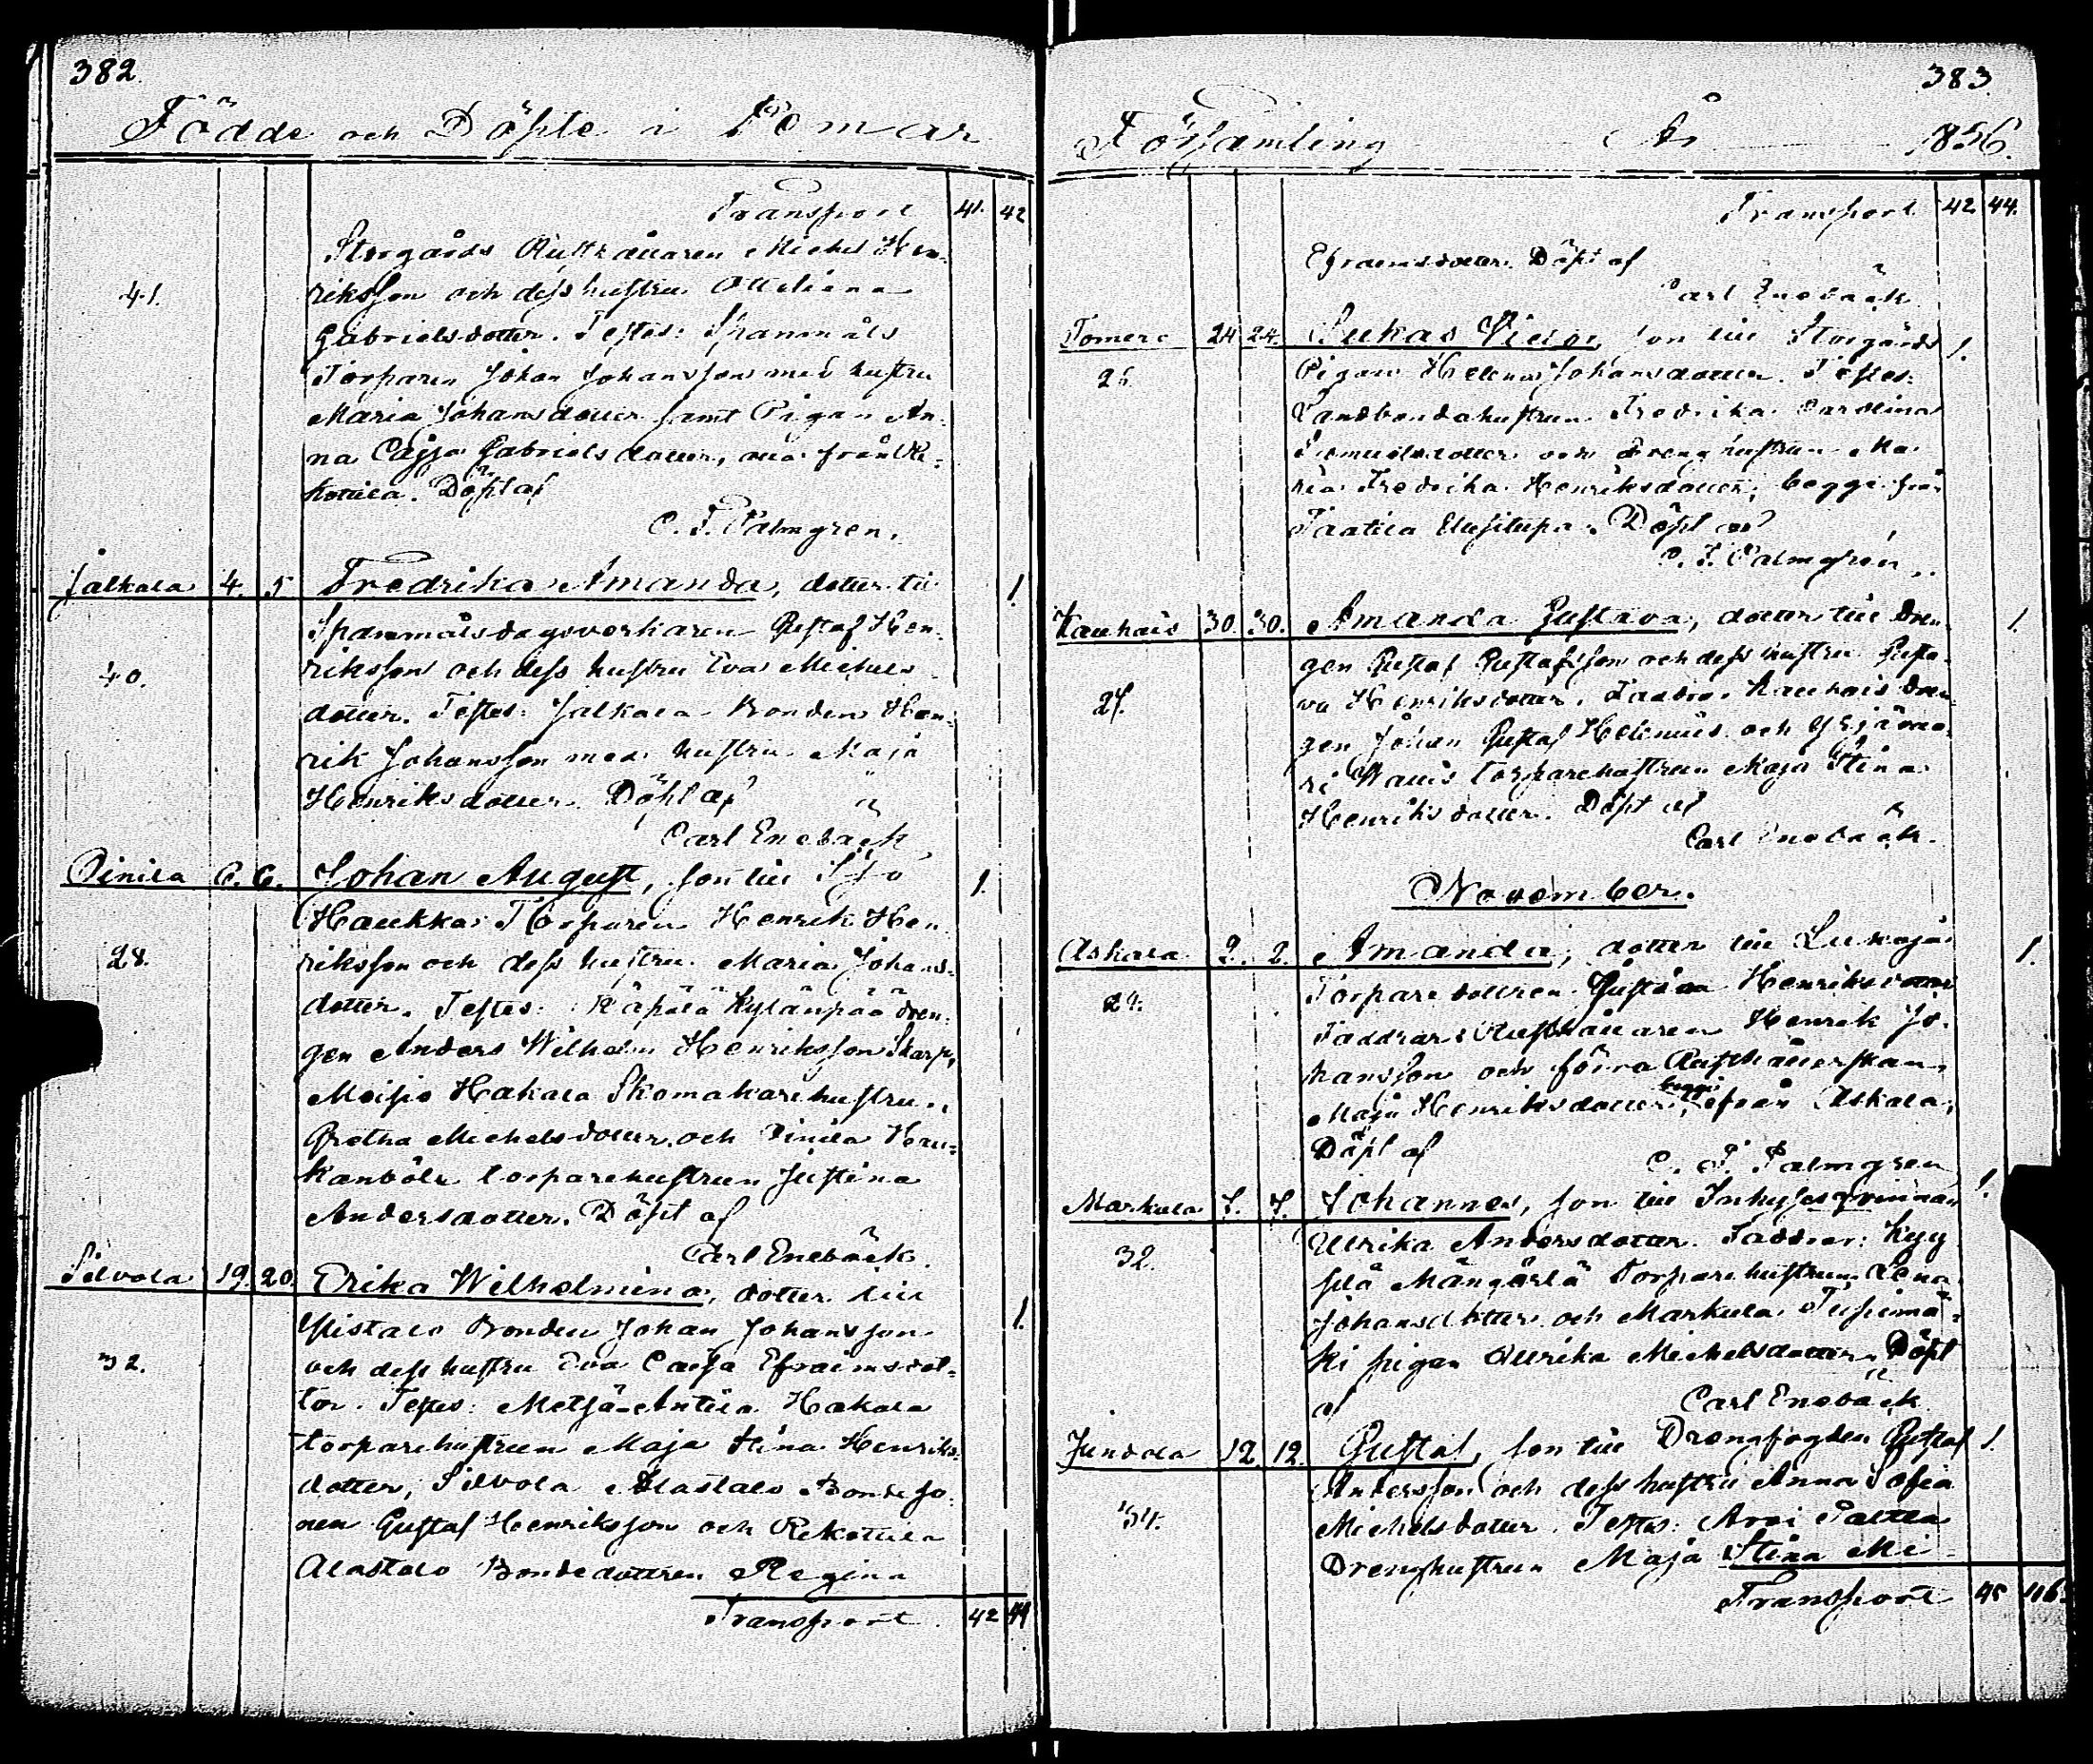 382.
Födde och Döpte i Pomar
Transport 41. 42
Storgårds Rusthållaren Michel Hen-
41. riksson och dess hustru Ottiliana
Gabrielsdotter. Testes: Spanmåls
Torparen Johan Johansson med hustru
Maria Johansdotter samt Pigan An-
na Cajsa Gabrielsdotter, alla från Ri-
kottila. Döpt af
C. F. Palmgren.
Jalkala 4. 5 Fredrika Amanda, dotter til 1.
Spanmålsdagsverkaren Gustaf Hen-
40. riksson och dess hustru Eva Michels
dotter. Testes: Jalkala Bonden Hen-
rik Johansson med hustru Maja
Henriksdotter. Döpt af
Carl Enebäck
Pinila 6. 6. Johan August, son till 1.
Haukka Torparen Henrik Hen-
28. riksson och dess hustru Maria Johans-
dotter. Testes: Käpälä Kylänpää dren-
gen Anders Wilhelm Henriksson Skarp,
Moisio Hakala Skomakarehustru
Gretha Michelsdotter och Pinila Hau-
kanböle torparehustrun Justina
Andersdotter. Döpt af
Carl Enebäck.
Silvola 19. 20. Erika Wilhelmina, dotter till 1.
Ylistalo Bonden Johan Johansson
32. och dess hustru Eva Caisa Efraimsdot-
ter. Testes: Metsä-Antila Hakala
torparehustrun Maja Stina Henriks-
dotter, Silvola Alastalo Bondeso-
nen Gustaf Henriksson och Rikottila
Alastalo Bondedottren Regina
Transport 42 44
383.
Församling År 1856.
Transport 42. 44.
Efraimsdotter. Döpt af
Carl Enebäck
24 24. Lukas Victor, son till Storgårds 1.
26. Pigan Helena Johansdotter. Testes:
Landbondahustrun Fredrika Carolina
Samuelsdotter och Drenghustrun Ma-
ria Fredrika Henriksdotter, begge från
Taatila Uusitupa. Döpt af
C. F. Palmgren.
Kauhais 30. 30. Amanda Gustava, dotter till Dren- 1.
gen Gustaf Gustafsson och dess hustru Gusta-
27. va Henriksdotter. Faddrar: Kauhais Dren-
gen Johan Gustaf Helenius och Yrjänä-
ri torparehustrun Maja Stina
Henriksdotter. Döpt af
Carl Enebäck.
November.
Askala 2. 2. Amanda, dotter till 1.
29. Torparedottren Gustava Henriksdotter
Faddrar: Rusthållaren Henrik Jo-
hansson och förra Rusthållerskan
Maja Henriksdotter, begge ifrån Askala,
Döpt af
C. F. Palmgren
Markula 7. 7. Johannes, son till Inhysesqvinnan 1.
32. Ulrika Andersdotter. Faddrar: Kyy
Torparehustrun Lena
Johansdotter och Markula
ki pigan Ulrika Michelsdotter. Döpt
af Carl Enebäck
Jundola 12. 12. Gustaf, son till Drengfogden Gustaf 1.
Andersson och dess hustru Anna Sofia
34. Michelsdotter. Testes:
Drenghustrun Maja Stina Mi-
Transport 45 46.